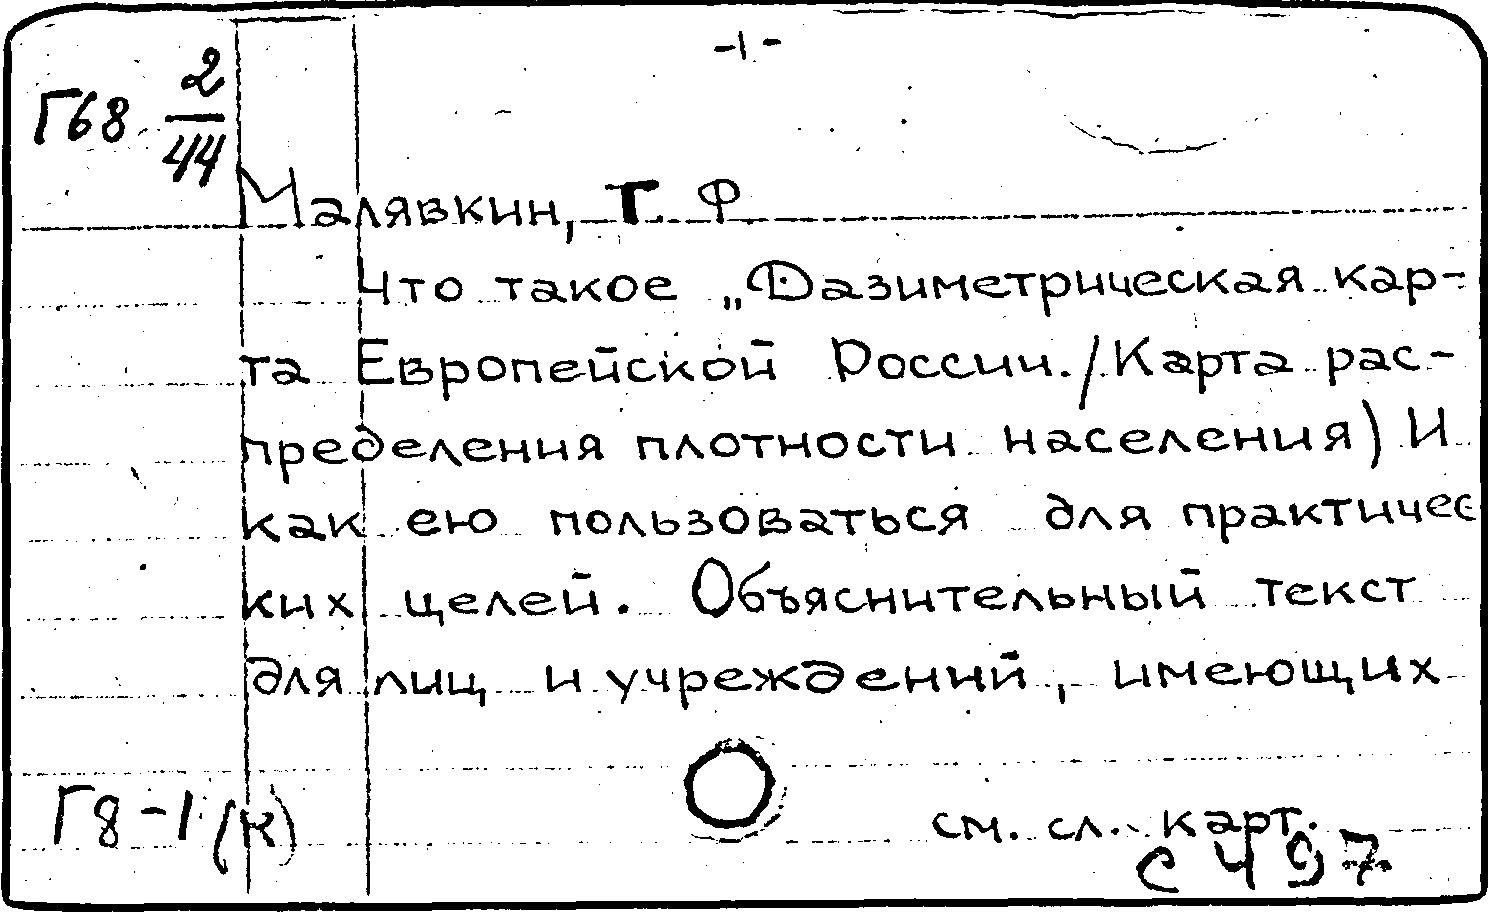 -1-
Г68 2/44
Малявкин, Г. Ф
Что такое „Дазиметрическая кар-
та Европейской России./Карта рас-
пределения плотности населения) И
как ею пользоваться для практичес
ких целей. Объяснительный текст
для лиц и учреждений, имеющих
Г8-1 (к)
см. сл. карт.
с 497